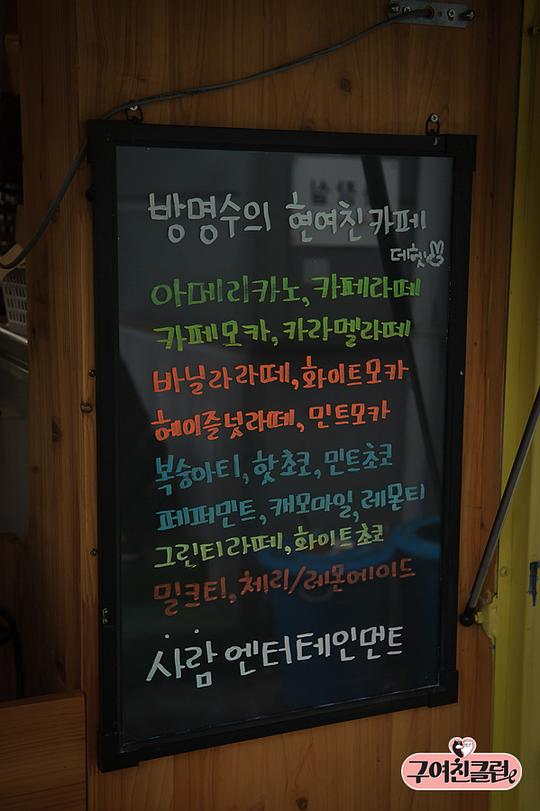 방명수의 현여친카페
데헷
아메리카노, 카페라떼
카페모카, 카라멜라떼
바닐라라떼, 화이트모카
헤이즐넛라떼, 민트모카
복숭아티, 핫쵸코, 민트쵸코
페퍼민트, 캐모마일, 레몬티
그린티라떼, 화이트쵸코
밀크티, 체리/레몬에이드
사람엔터테인먼트
구여친클럽